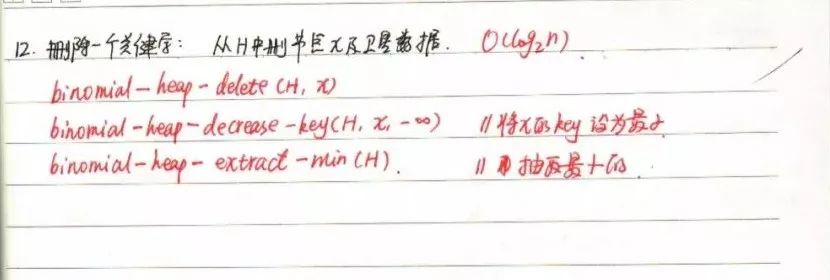 12. 删除一个关键字: 从H中删节点x及卫星数据. O(log₂n)
binomial-heap-delete(H, x)
binomial-heap-decrease-key(H, x, -∞) //将x的key设为最小
binomial-heap-extract-min(H). //抽取最小的.